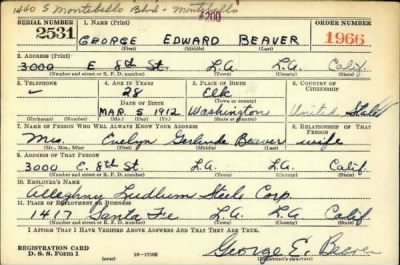 1440 S Montebello Blvd - Montebello
#200
SERIAL NUMBER 1. NAME (Print) ORDER NUMBER
2531 GEORGE EDWARD BEAVER 1966
(First) (Middle) (Last)
2. ADDRESS (Print)
3000 E 8th St. L.A. L.A. Calif
(Number and street or R. F. D. number) (Town) (County) (State)
3. TELEPHONE 4. AGE IN YEARS 5. PLACE OF BIRTH 6. COUNTRY OF CITIZENSHIP
28 Elk
(Town or county)
DATE OF BIRTH
MAR 5 1912 Washington United States
(Exchange) (Number) (Mo.) (Day) (Yr.) (State or country)
7. NAME OF PERSON WHO WILL ALWAYS KNOW YOUR ADDRESS 8. RELATIONSHIP OF THAT PERSON
Mrs. Evelyn Gertrude Beaver wife
(Mr., Mrs., Miss) (First) (Middle) (Last)
9. ADDRESS OF THAT PERSON
3000 E. 8th St. L.A. L.A. Calif.
(Number and street or R. F. D. number) (Town) (County) (State)
10. EMPLOYER'S NAME
Allegheny Ludlum Steel Corp.
11. PLACE OF EMPLOYMENT OR BUSINESS
1417 Santa Fe L.A. L.A. Calif
(Number and street or R. F. D. number) (Town) (County) (State)
I AFFIRM THAT I HAVE VERIFIED ABOVE ANSWERS AND THAT THEY ARE TRUE.
REGISTRATION CARD
D. S. S. Form 1 George E. Beaver
(over) 16-17105 (Registrant's signature)